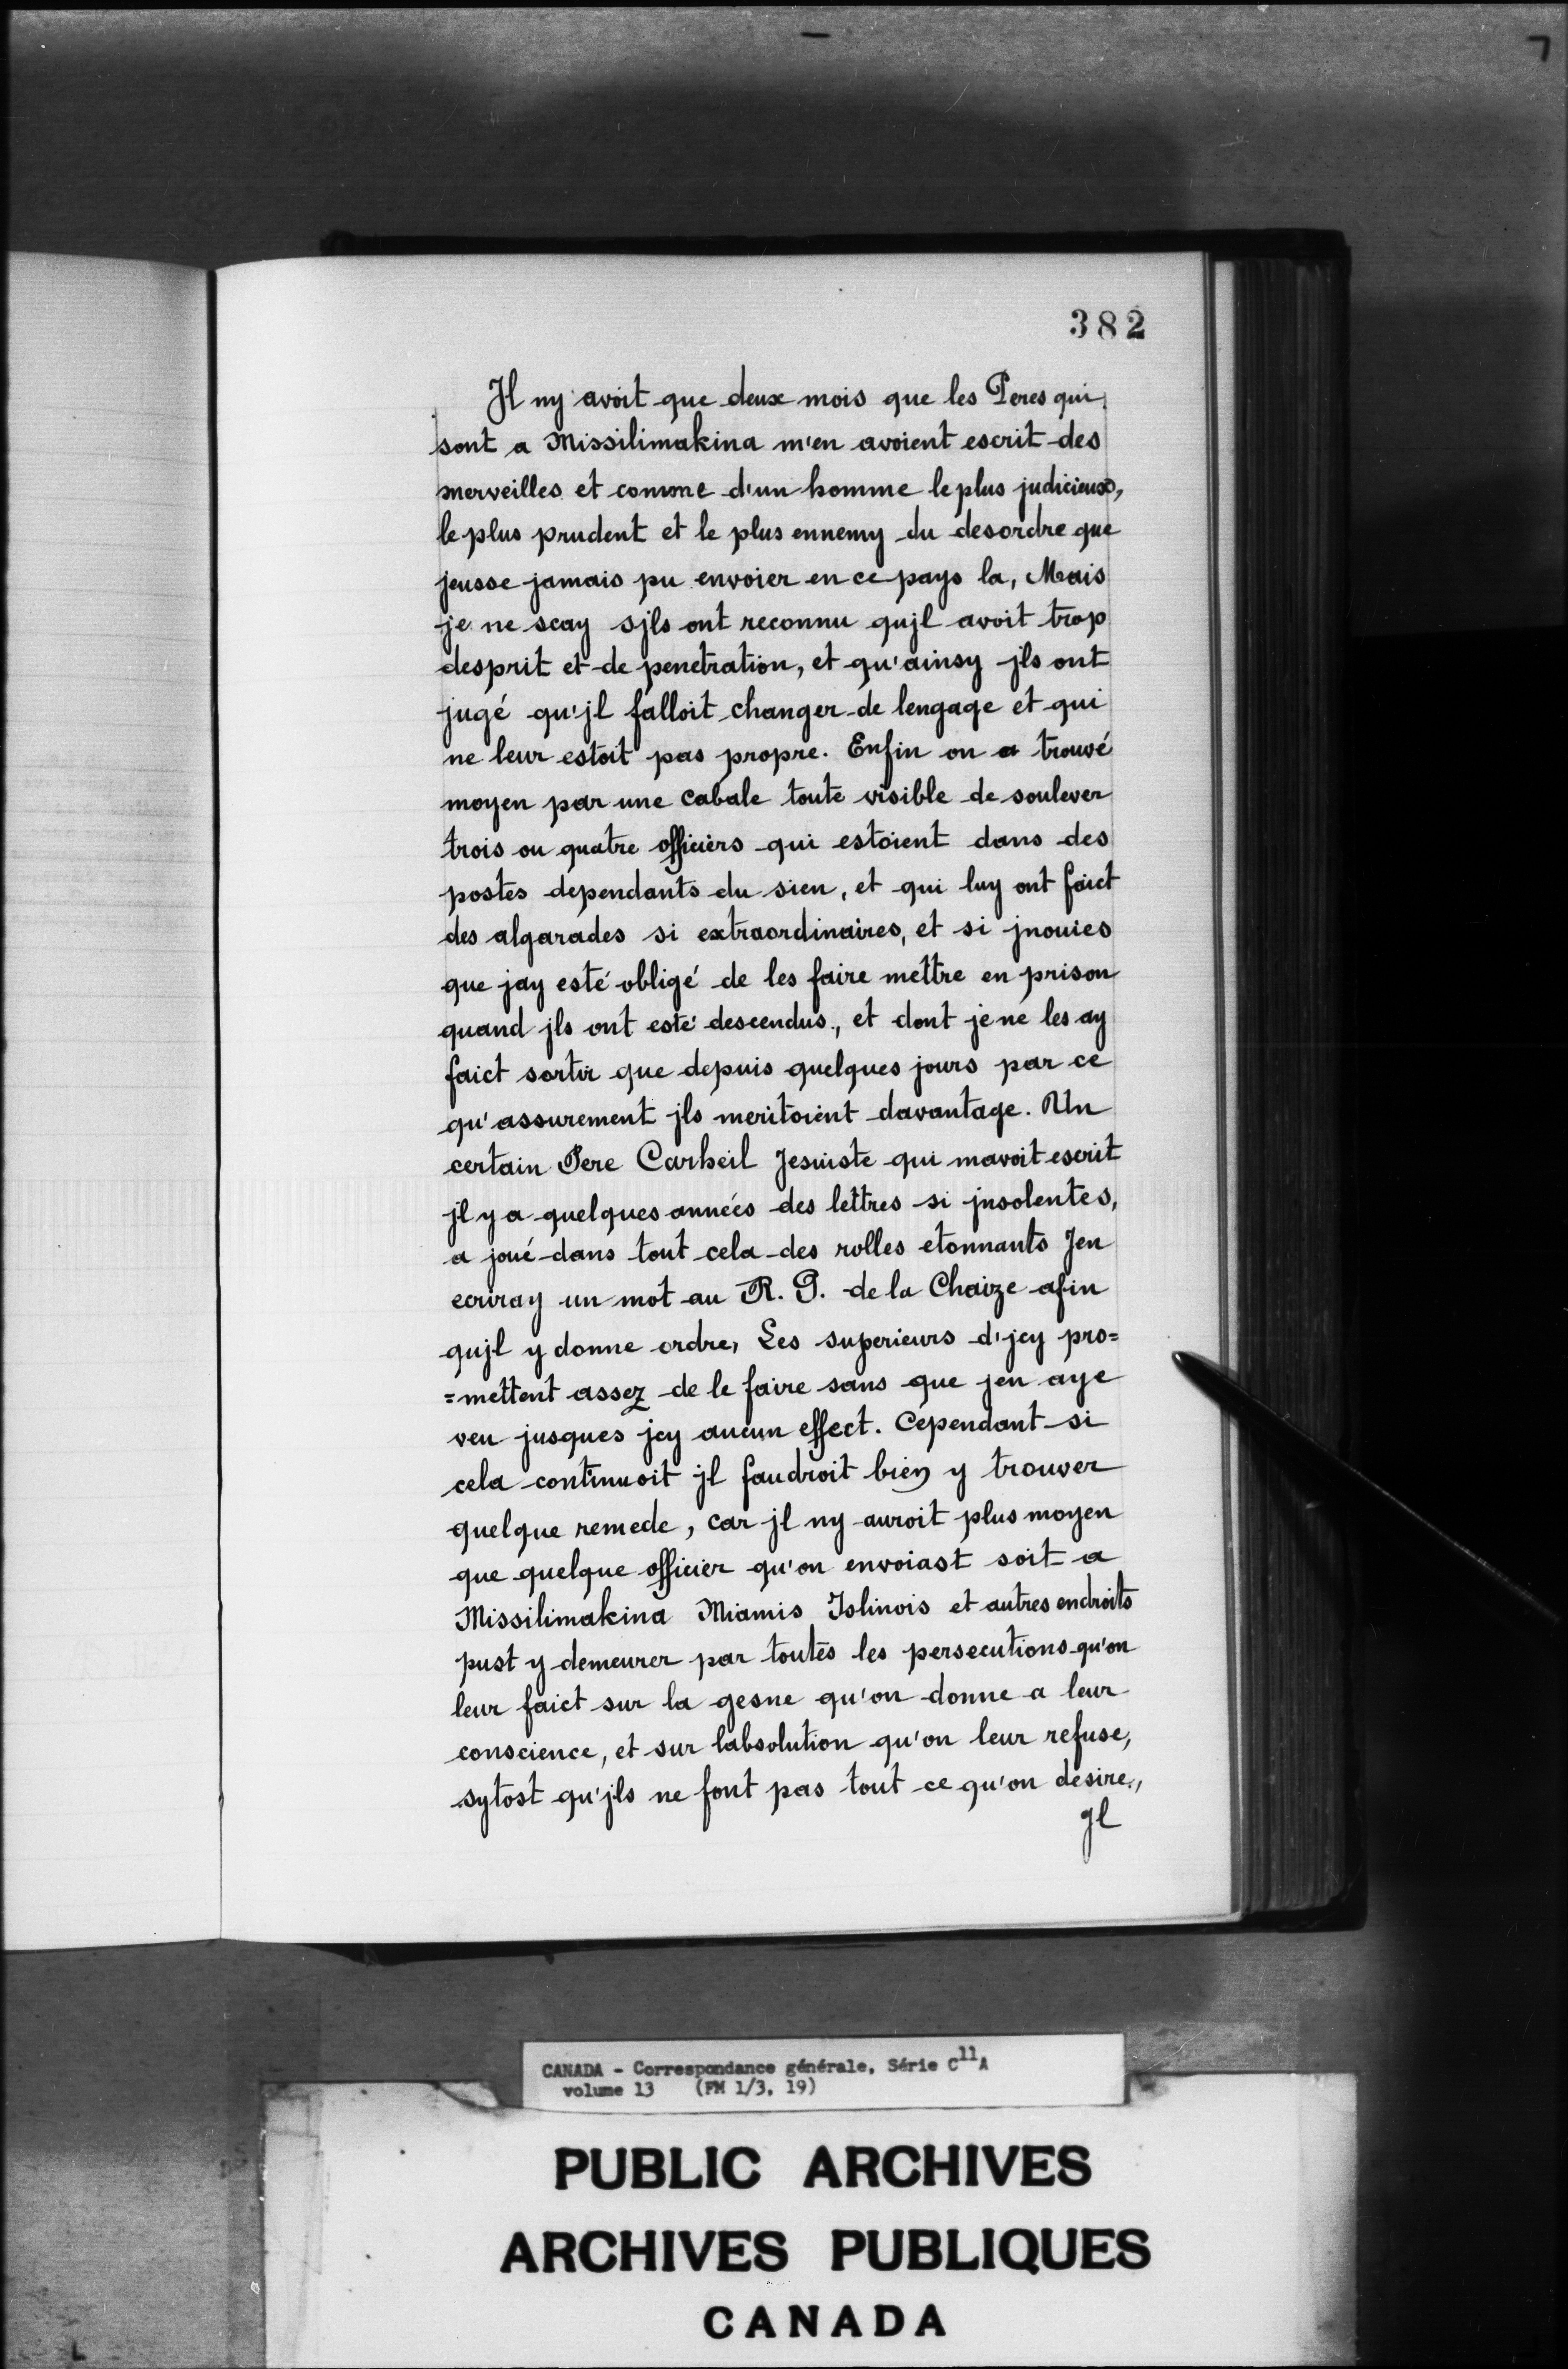 382
Jl ny avoit que deux mois que les Peres qui
sont a Missilimakina m'en avoient escrit des
merveilles et comme d'un homme le plus judicieux,
le plus prudent et le plus ennemy du desordre que
jeusse jamais pu envoier en ce pays la, Mais
je ne scay sjls ont reconnu qujl avoit trop
desprit et de penetration, et qu'ainsy jls ont
jugé qu'jl falloit changer de lengage et qui
ne leur estoit pas propre. Enfin on a trouvé
moyen par une cabale toute visible de soulever
trois ou quatre officiers qui estoient dans des
postes dependants du sien, et qui luy ont faict
des algarades si extraordinaires, et si jnouies
que jay esté obligé de les faire mettre en prison
quand jls ont esté descendus, et dont je ne les ay
faict sortir que depuis quelques jours par ce
qu'assurement jls meritoient davantage. Un
certain Pere Carheil Jesuiste qui mavoit escrit
jl y a quelques années des lettres si jnsolentes,
a joué dans tout cela des rolles etonnants Jen
ecriray un mot au R. P. de la Chaize afin
qujl y donne ordre, Les superieurs d'jcy pro=
=mettent assez de le faire sans que jen aye
veu jusques jcy aucun effect. Cependant si
cela continuoit jl faudroit bien y trouver
quelque remede, car jl ny auroit plus moyen
que quelque officier qu'on envoiast soit a
Missilimakina Miamis Islinois et autres endroits
pust y demeurer par toutes les persecutions qu'on
leur faict sur la gesne qu'on donne a leur
conscience, et sur labsolution qu'on leur refuse,
sytost qu'jls ne font pas tout ce qu'on desire,
Jl
CANADA - Correspondance générale, Série C11A
volume 13 (FM 1/3, 19)
PUBLIC ARCHIVES
ARCHIVES PUBLIQUES
CANADA